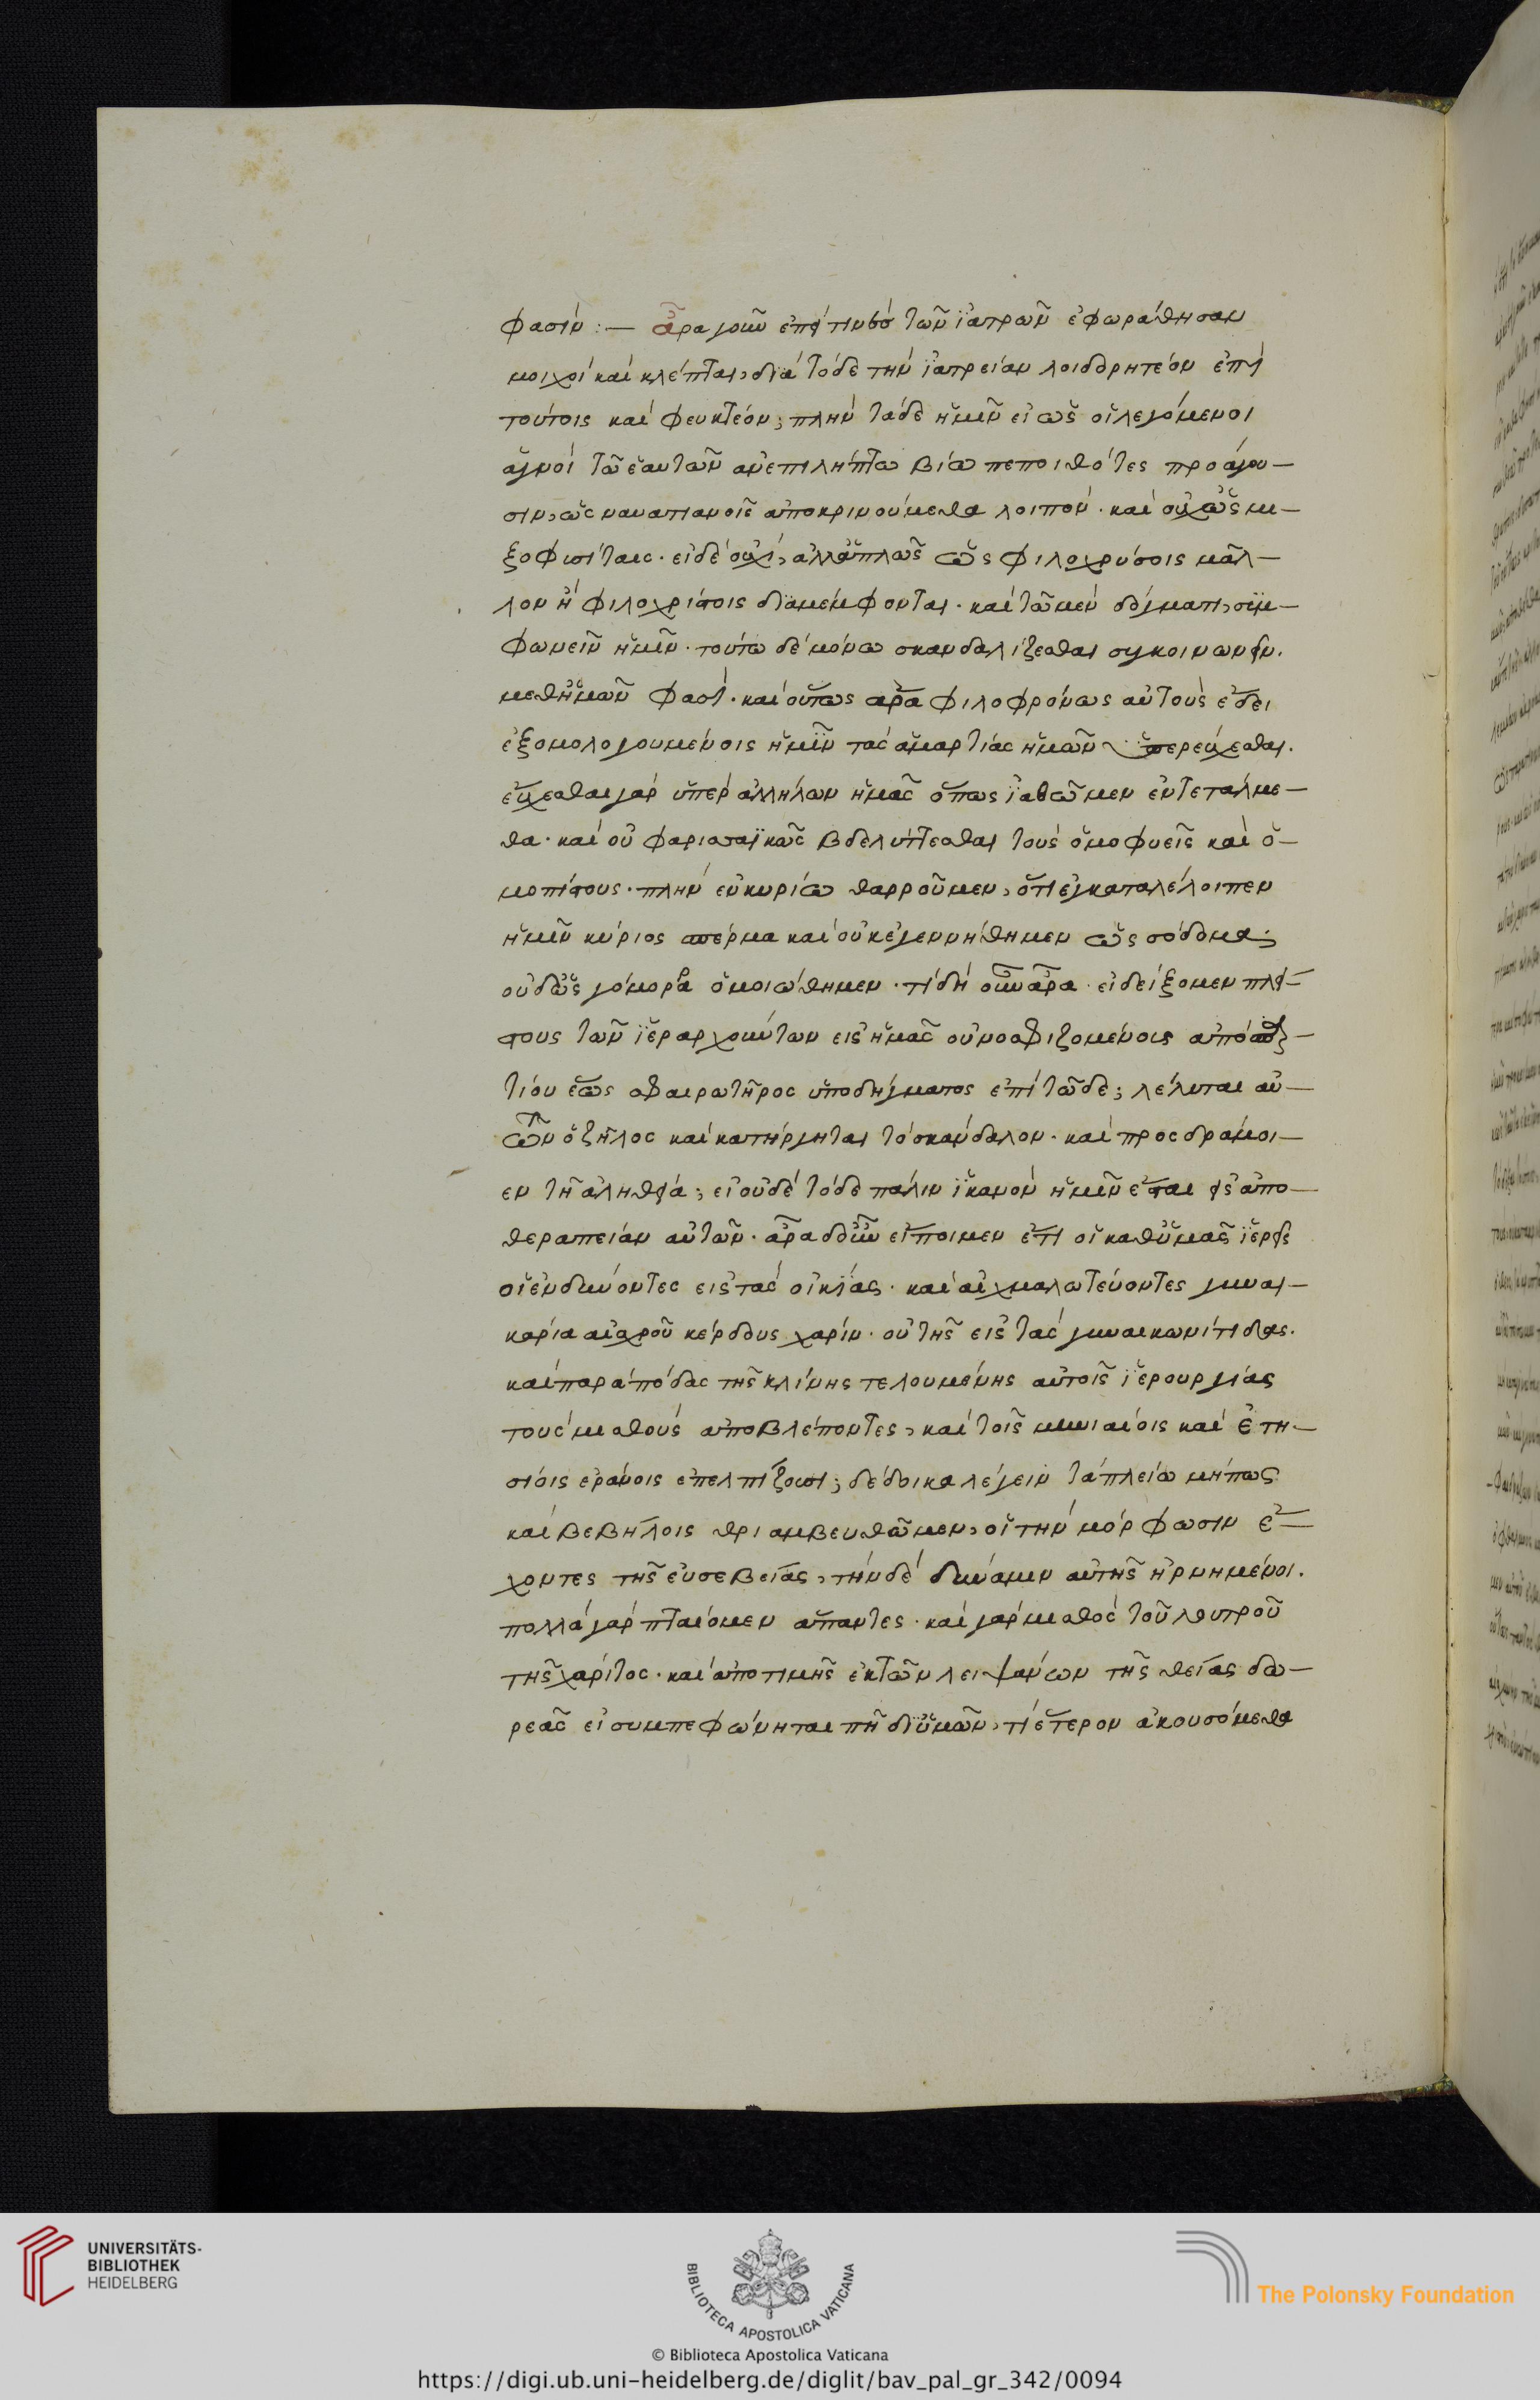 φασίν :— ἆρα γοῦν ἐπεί τινες τῶν ἰατρῶν ἐφωράθησαν
μοιχοί καί κλέπται, διά τόδε τήν ἰατρείαν λοιδορητέον ἐπί
τούτοις καί φευκτέον; πλήν τάδε ἡμῖν εἰ ὡς οἱ λεγόμενοι
ἁγνοί τῶ ἑαυτῶν ἀνεπιλήπτω βίω πεποιθότες προάγου—
σιν, ὡς ναυατιανοῖς ἀποκρινούμεθα λοιπόν · καί οὐχ ὡς μι—
ξοφυσίταις · εἰ δέ οὐχί, ἀλλ' ἁπλῶς ὡς φιλοχρύσοις μᾶλ—
λον ἤ φιλοχρίστοις διαμέμφονται · καί τῶ μέν δόγματι, συμ—
φωνεῖν ἡμῖν · τούτω δέ μόνω σκανδαλίζεσθαι συγκοινωνεῖν.
μεθ' ἡμῶν φασί · καί οὕτως ἄρα φιλοφρόνως αὐτούς ἔδει
ἐξομολογουμένοις ἡμῖν τάς ἁμαρτίας ἡμῶν ὑπερεύχεσθαι.
εὔχεσθαι γάρ ὑπέρ ἀλλήλων ἡμᾶς ὅπως ἰαθῶμεν ἐντετάλμε—
θα · καί οὐ φαρισαϊκῶς βδελύττεσθαι τούς ὁμοφυεῖς καί ὁ—
μοπίστους · πλήν ἐν κυρίω θαρροῦμεν, ὅτι ἐγκαταλέλοιπεν
ἡμῖν κύριος σπέρμα καί οὐκ ἐγεννήθημεν ὡς σόδομα;
οὐδ' ὡς γόμορα ὁμοιώθημεν · τί δή οὖν ἆρα · εἰ δείξομεν πλεί—
στους τῶν ἱεραρχούντων εἰς ἡμᾶς οὐ νοσφιζομένοις ἀπό
τίου ἕως σφαιρωτῆρος ὑποδήγματος ἐπί τῶδε; λέλυται αὐ—
τῶν ὁ ζῆλος καί κατήργηται τό σκάνδαλον · καί προςδράμοι—
εν τῆ ἀληθεία; εἰ οὐδέ τόδε πάλιν ἱκανόν ἡμῖν ἔσται εἰς ἀπο—
θεραπείαν αὐτῶν · ἆρα δ' οὖν εἴποιμεν ἔτι οἱ καθ' ὑμᾶς ἱερεῖς
οἱ ἐνδύνοντες εἰς τάς οἰκίας · καί αἰχμαλωτεύοντες γυναι—
κάρια αἰσχροῦ κέρδους χάριν · οὐ τῆς εἰς τάς γυναικωνίτιδας.
καί παρά πόδας τῆς κλίνης τελουμένης αὐτοῖς ἱερουργίας
τούς μισθούς ἀποβλέποντες, καί τοῖς μηνιαίοις καί ἐτη—
σίοις ἐράνοις ἐπελπίζουσι; δέδοικα λέγειν τά πλείω μήπως
καί βεβήλοις θριαμβευθῶμεν, οἱ τήν μόρφωσιν ἔ—
χοντες τῆς εὐσεβείας, τήν δέ δύναμιν αὐτῆς ἠρνημένοι.
πολλά γάρ πταίομεν ἅπαντες · καί γάρ μισθός τοῦ λουτροῦ
τῆς χάριτος · καί ἀποτιμῆς ἐκ τῶν λειψάνων τῆς θείας δω—
ρεᾶς εἰ συμπεφώνηται πῆ δι' ὑμῶν, τί ἕτερον ἀκουσόμεθα
UNIVERSITÄTS-
BIBLIOTHEK
HEIDELBERG
BIBLIOTECA APOSTOLICA VATICANA
The Polonsky Foundation
© Biblioteca Apostolica Vaticana
https://digi.ub.uni-heidelberg.de/diglit/bav_pal_gr_342/0094